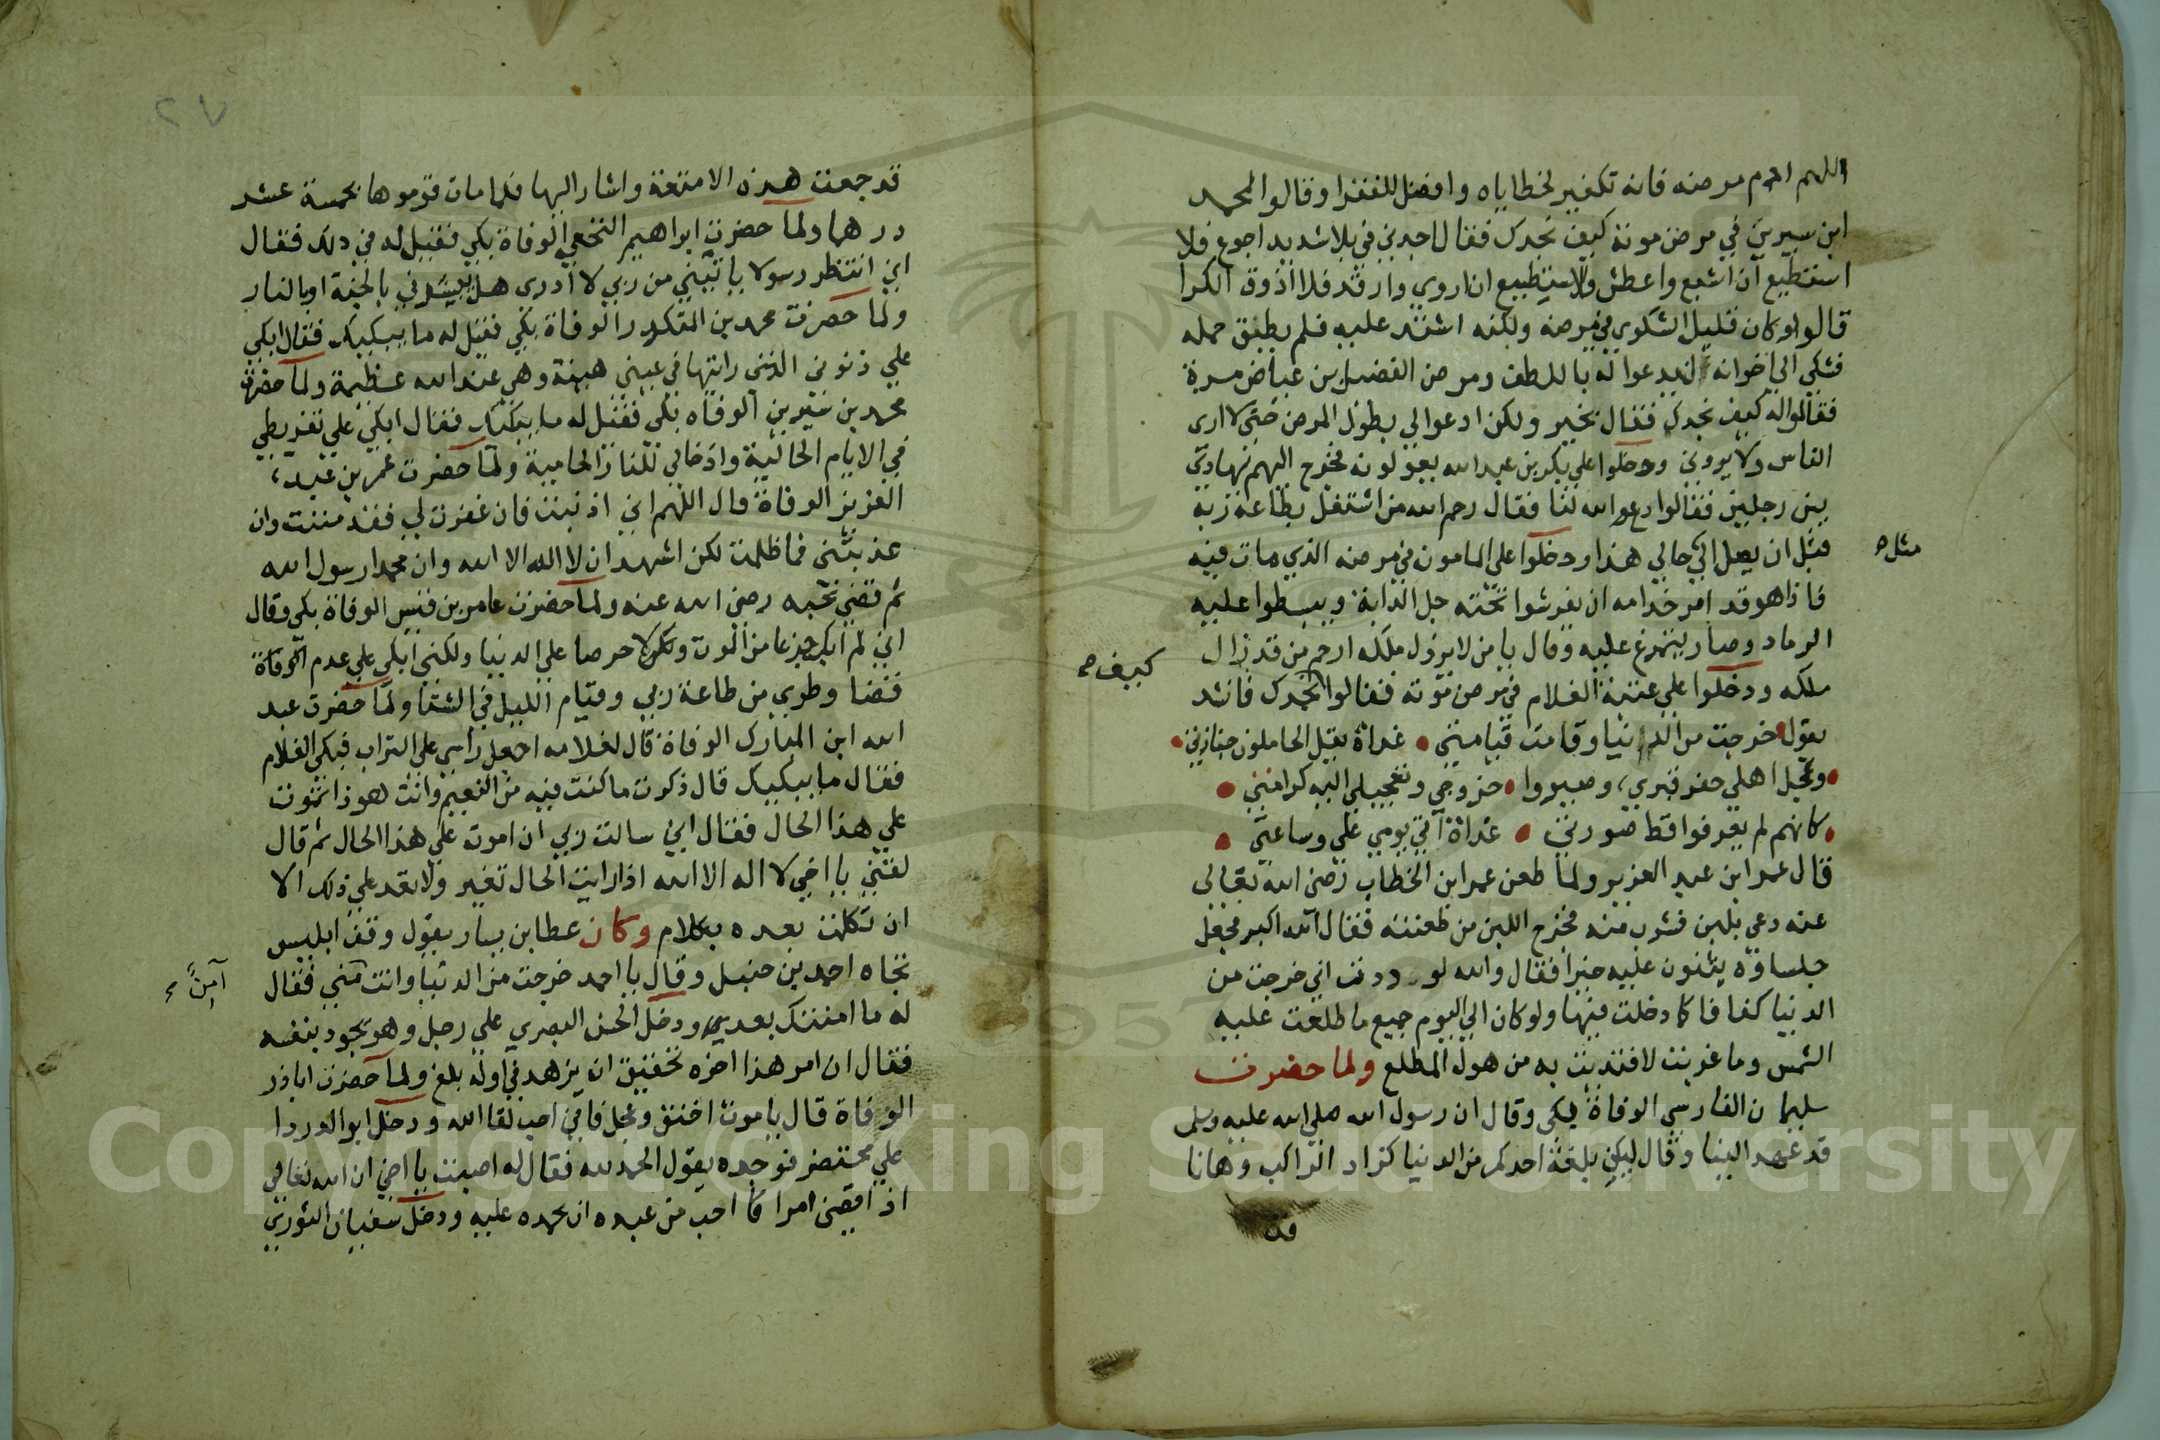 اللهم ادم مرضه فانه تكفير لخطاياه وافضل للفقرا وقالوا لمحمد
ابن سيرين في مرض موته كيف نجدك فقال اجدني في بلا شديد اجوع فلا
استطيع ان اشبع واعطش ولا استطيع ان اروي وارقد فلا اذوق الكرا
قالوا وكان قليل الشكوي في مرضه ولكنه اشتد عليه فلم يطق حمله
فشكي الي اخوانه ليدعوا له باللطف ومرض الفضيل بن عياض مرة
فقالوا له كيف نجدك فقال بخير ولكن ادعوا لي بطول المرض حتي لا اري
الناس ولا يروني ودخلوا علي بكر بن عبد الله يعودونه فخرج اليهم يهادي
بين رجلين فقالوا ادعوا الله لنا فقال رحم الله من اشتغل بطاعة ربه
قبل ان يصل الي حالي هذا ودخلوا علي المامون في مرضه الذي مات فيه
مثل
فاذا هو قد امر خدامه ان يفرشوا تحته جل الدابة ويبسطوا عليه
الرماد وصار يتمرغ عليه وقال يا من لا يزول ملكه ارحم من قد زال
كيف
ملكه ودخلوا علي عتبة الغلام في مرض موته فقالوا نجدك فانشد
يقول خرجت من الدنيا وقامت قيامتي غداة يقل الحاملون جنازتي
وعجل اهلي حفر قبري وصيروا خروجي وتعجيلي اليه كرامتي
كانهم لم يعرفوا قط صورتي غداة اتي يومي علي وساعتي
قال عمر ابن عبد العزيز ولما طعن عمر ابن الخطاب رضي الله تعالي
عنه دعي بلبن فشرب منه فخرج اللبن من طعنته فقال الله اكبر فجعل
جلساؤه يثنون عليه خيرا فقال والله لوددت اني خرجت من
الدنيا كفافا كما دخلت فيها ولو كان الي اليوم جميع ما طلعت عليه
الشمس وما غربت لافتديت به من هول المطلع ولما حضرت
سليمان الفارسي الوفاة بكي وقال ان رسول الله صلي الله عليه وسلم
قد عهد الينا وقال ليكن بلغة احدكم من الدنيا كزاد الراكب وها انا
قد
٢٧
قد جمعت هذه الامتعة واشار اليها فلما مات قوموها بخمسة عشر
درهما ولما حضرت ابراهيم النخعي الوفاة بكي فقيل له في ذلك فقال
اني انتظر رسولا ياتيني من ربي لا ادري هل يبشرني بالجنة او بالنار
ولما حضرت محمد بن المنكدر الوفاة بكي فقيل له ما يبكيك فقال ابكي
علي ذنوبي التي رايتها في عيني هينة وهي عند الله عظيمة ولما حضرت
محمد بن سيرين الوفاه بكي فقيل له ما يبكيك فقال ابكي علي تفريطي
في الايام الخالية وادخالي للنار الحامية ولما حضرت عمر بن عبد
العزيز الوفاة قال اللهم اني اذنبت فان غفرت لي فقد مننت وان
عذبتني فما ظلمت لكن اشهد ان لا اله الا الله وان محمدا رسول الله
ثم قضي نحبه رضي الله عنه ولما حضرت عامر بن قيس الوفاة بكي وقال
اني لم ابك جزعا من الموت ولا حرصا علي الدنيا ولكني ابكي علي عدم الوفاة
قضا وطري من طاعة ربي وقيام الليل في الشتا ولما حضرت عبد
الله ابن المبارك الوفاة قال لغلامه اجعل راسي علي التراب فبكي الغلام
فقال ما يبكيك قال ذكرت ما كنت فيه من النعيم وانت هو ذا تموت
علي هذا الحال فقال اني سالت ربي ان اموت علي هذا الحال ثم قال
لقني يا اخي لا اله الا الله اذا رايت الحال تغير ولا تعد علي ذلك الا
ان تكلمت بعده بكلام وكان عطا بن يسار يقول وقف ابليس
تجاه احمد بن حنبل وقال يا احمد خرجت من الدنيا وانت مني فقال
آمنًا
له ما امنتك بعد ودخل الحسن البصري علي رجل وهو يجود بنفسه
فقال ان امر هذا اخره تحقيق ان يزهد في اوله بلغ ولما حضرت اباذر
الوفاة قال يا موت اخنق وعجل فاني احب لقا الله ودخل ابو الدردا
علي محتضر فوجده يقول الحمد لله فقال له اصبت يا اخي ان الله تعالي
اذا قضي امرا كما احب من عبده ان يحمده عليه ودخل سفيان الثوري
Copyright © King Saud University